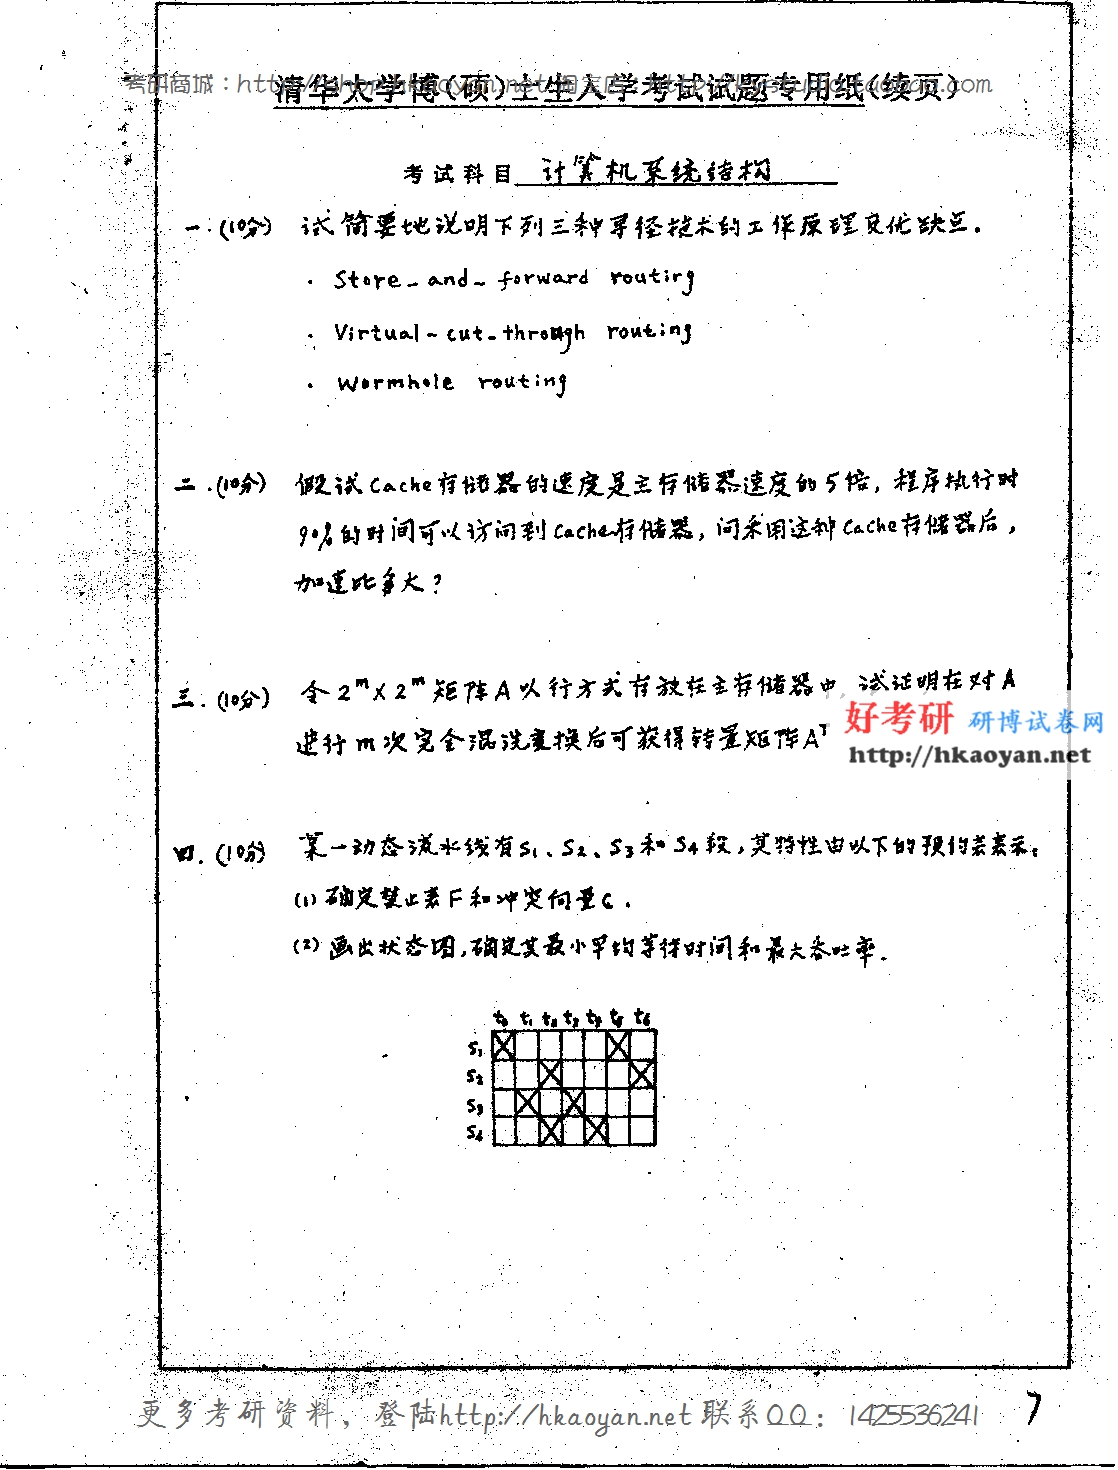 考研商城：http://shop.hkaoyan.net 淘宝店：http://hkstudio.taobao.com
清华大学博(硕)士生入学考试试题专用纸(续页)
考试科目 计算机系统结构
一.(10分) 试简要地说明下列三种寻径技术的工作原理及优缺点.
· Store-and-forward routing
· Virtual-cut-through routing
· Wormhole routing
二.(10分) 假试Cache存储器的速度是主存储器速度的5倍, 程序执行时
90%的时间可以访问到Cache存储器, 问采用这种Cache存储器后,
加速比多大?
三.(10分) 令2^m×2^m矩阵A以行方式存放在主存储器中, 试证明在对A
进行m次完全混洗变换后可获得转置矩阵A^T
好考研 研博试卷网
http://hkaoyan.net
四.(10分) 某一动态流水线有S1、S2、S3和S4段, 其特性由以下的预约表表示:
(1) 确定禁止表F和冲突向量C.
(2) 画出状态图, 确定其最小平均等待时间和最大吞吐率.
t0 t1 t2 t3 t4 t5 t6
S1
S2
S3
S4
更多考研资料，登陆http://hkaoyan.net 联系QQ：1425536241
7